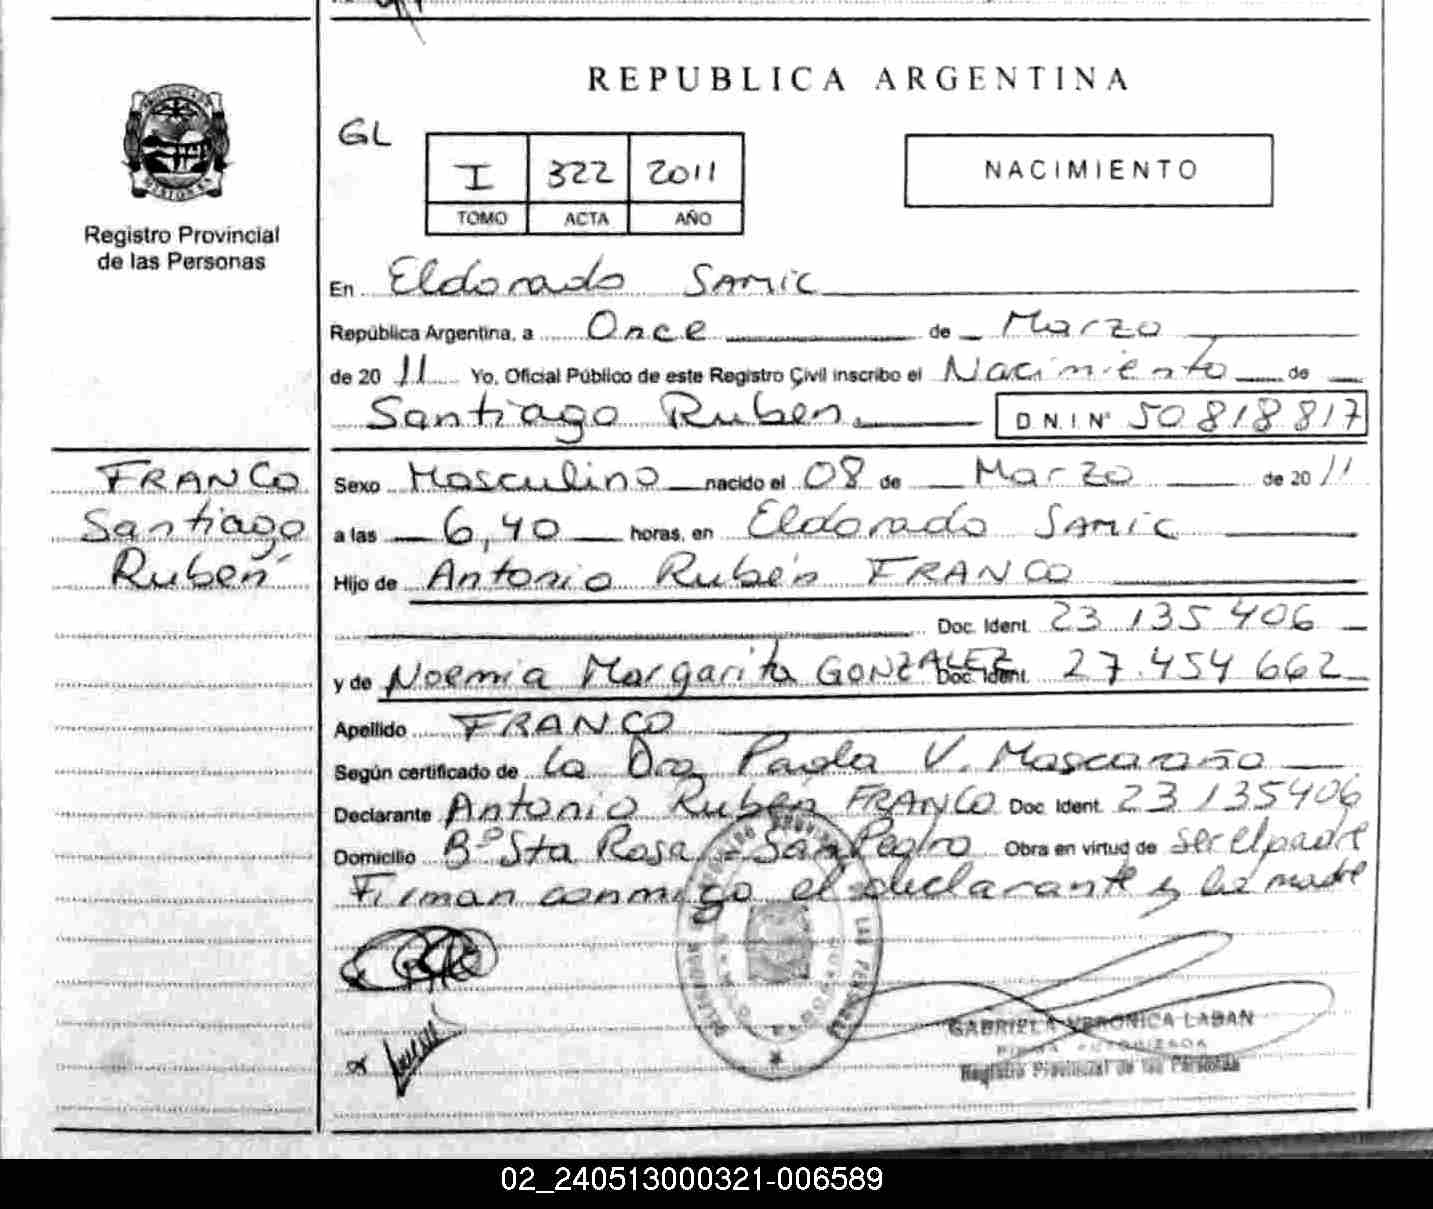 REPUBLICA ARGENTINA
GL
I 322 2011
TOMO ACTA AÑO
NACIMIENTO
Registro Provincial
de las Personas
En Eldorado SAMIC
República Argentina, a Once de Marzo
de 20 11 Yo, Oficial Público de este Registro Civil inscribo el Nacimiento de
Santiago Rubén. D.N.I Nº 50 818 817
FRANCO
Santiago
Rubén
Sexo Masculino nacido el 08 de Marzo de 20 11
a las 6,40 horas, en Eldorado SAMIC
Hijo de Antonio Rubén FRANCO
Doc. Ident. 23 135 406
y de Noemia Margarita GONZALEZ Doc. Ident. 27.454 662
Apellido FRANCO
Según certificado de la Dra Paola V. Mascaraño
Declarante Antonio Ruben FRANCO Doc. Ident. 23 135406
Domicilio Bº Sta Rosa - San Pedro Obra en virtud de ser el padre
Firman conmigo el declarante y la madre
GABRIELA VERONICA LABAN
FIRMA AUTORIZADA
Registro Provincial de las Personas
02_240513000321-006589